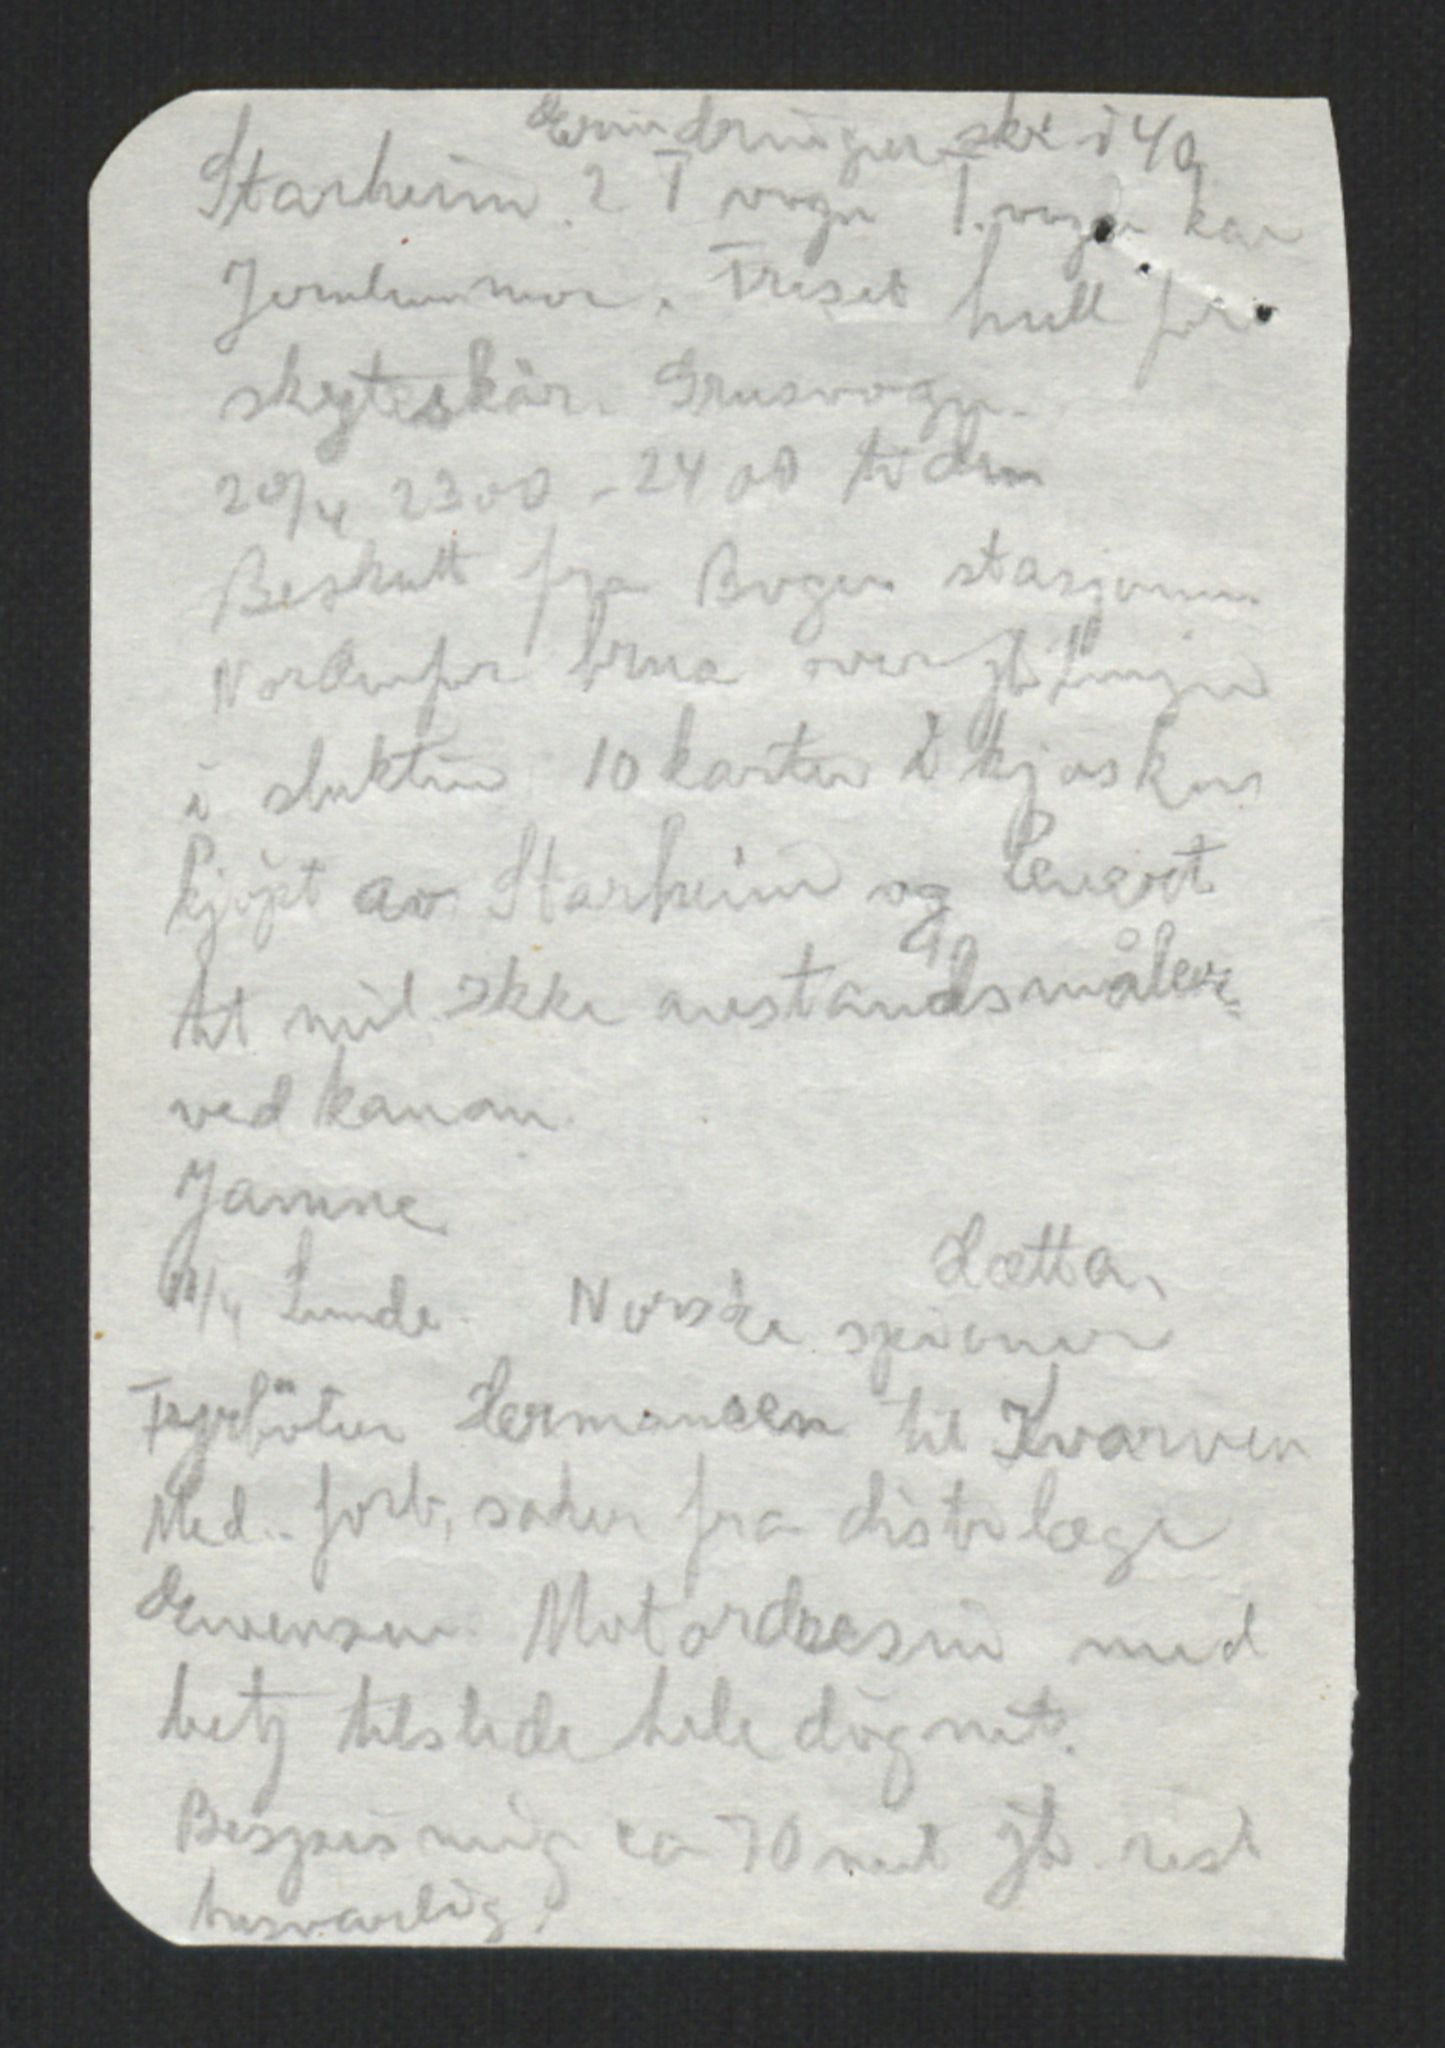 Erindringer skr i 40
Starheim. 2 T vogn T. vogn kar
Jernlemmer. Treset hull for
skyteskår. Grusvogn.
20/4 2300 - 2400 tiden
Beskutt fra Bogen stasjonen
Nordenfor brua over jb linjen
i sluktin 10 karter i kjosken
kjøpt av Starheim og levert
til mil. Ikke avstandsmåler
ved kanon.
Janne
/4 Lunde. Norske spioner Hætta,
Fyrbøter Hermansen til Kvarven
Med. forb, saker fra distr læge
Evensen. Motordresin med
betj tilstede hele døgnet.
Bespisning ca 70 met jb. rest
husværlig.